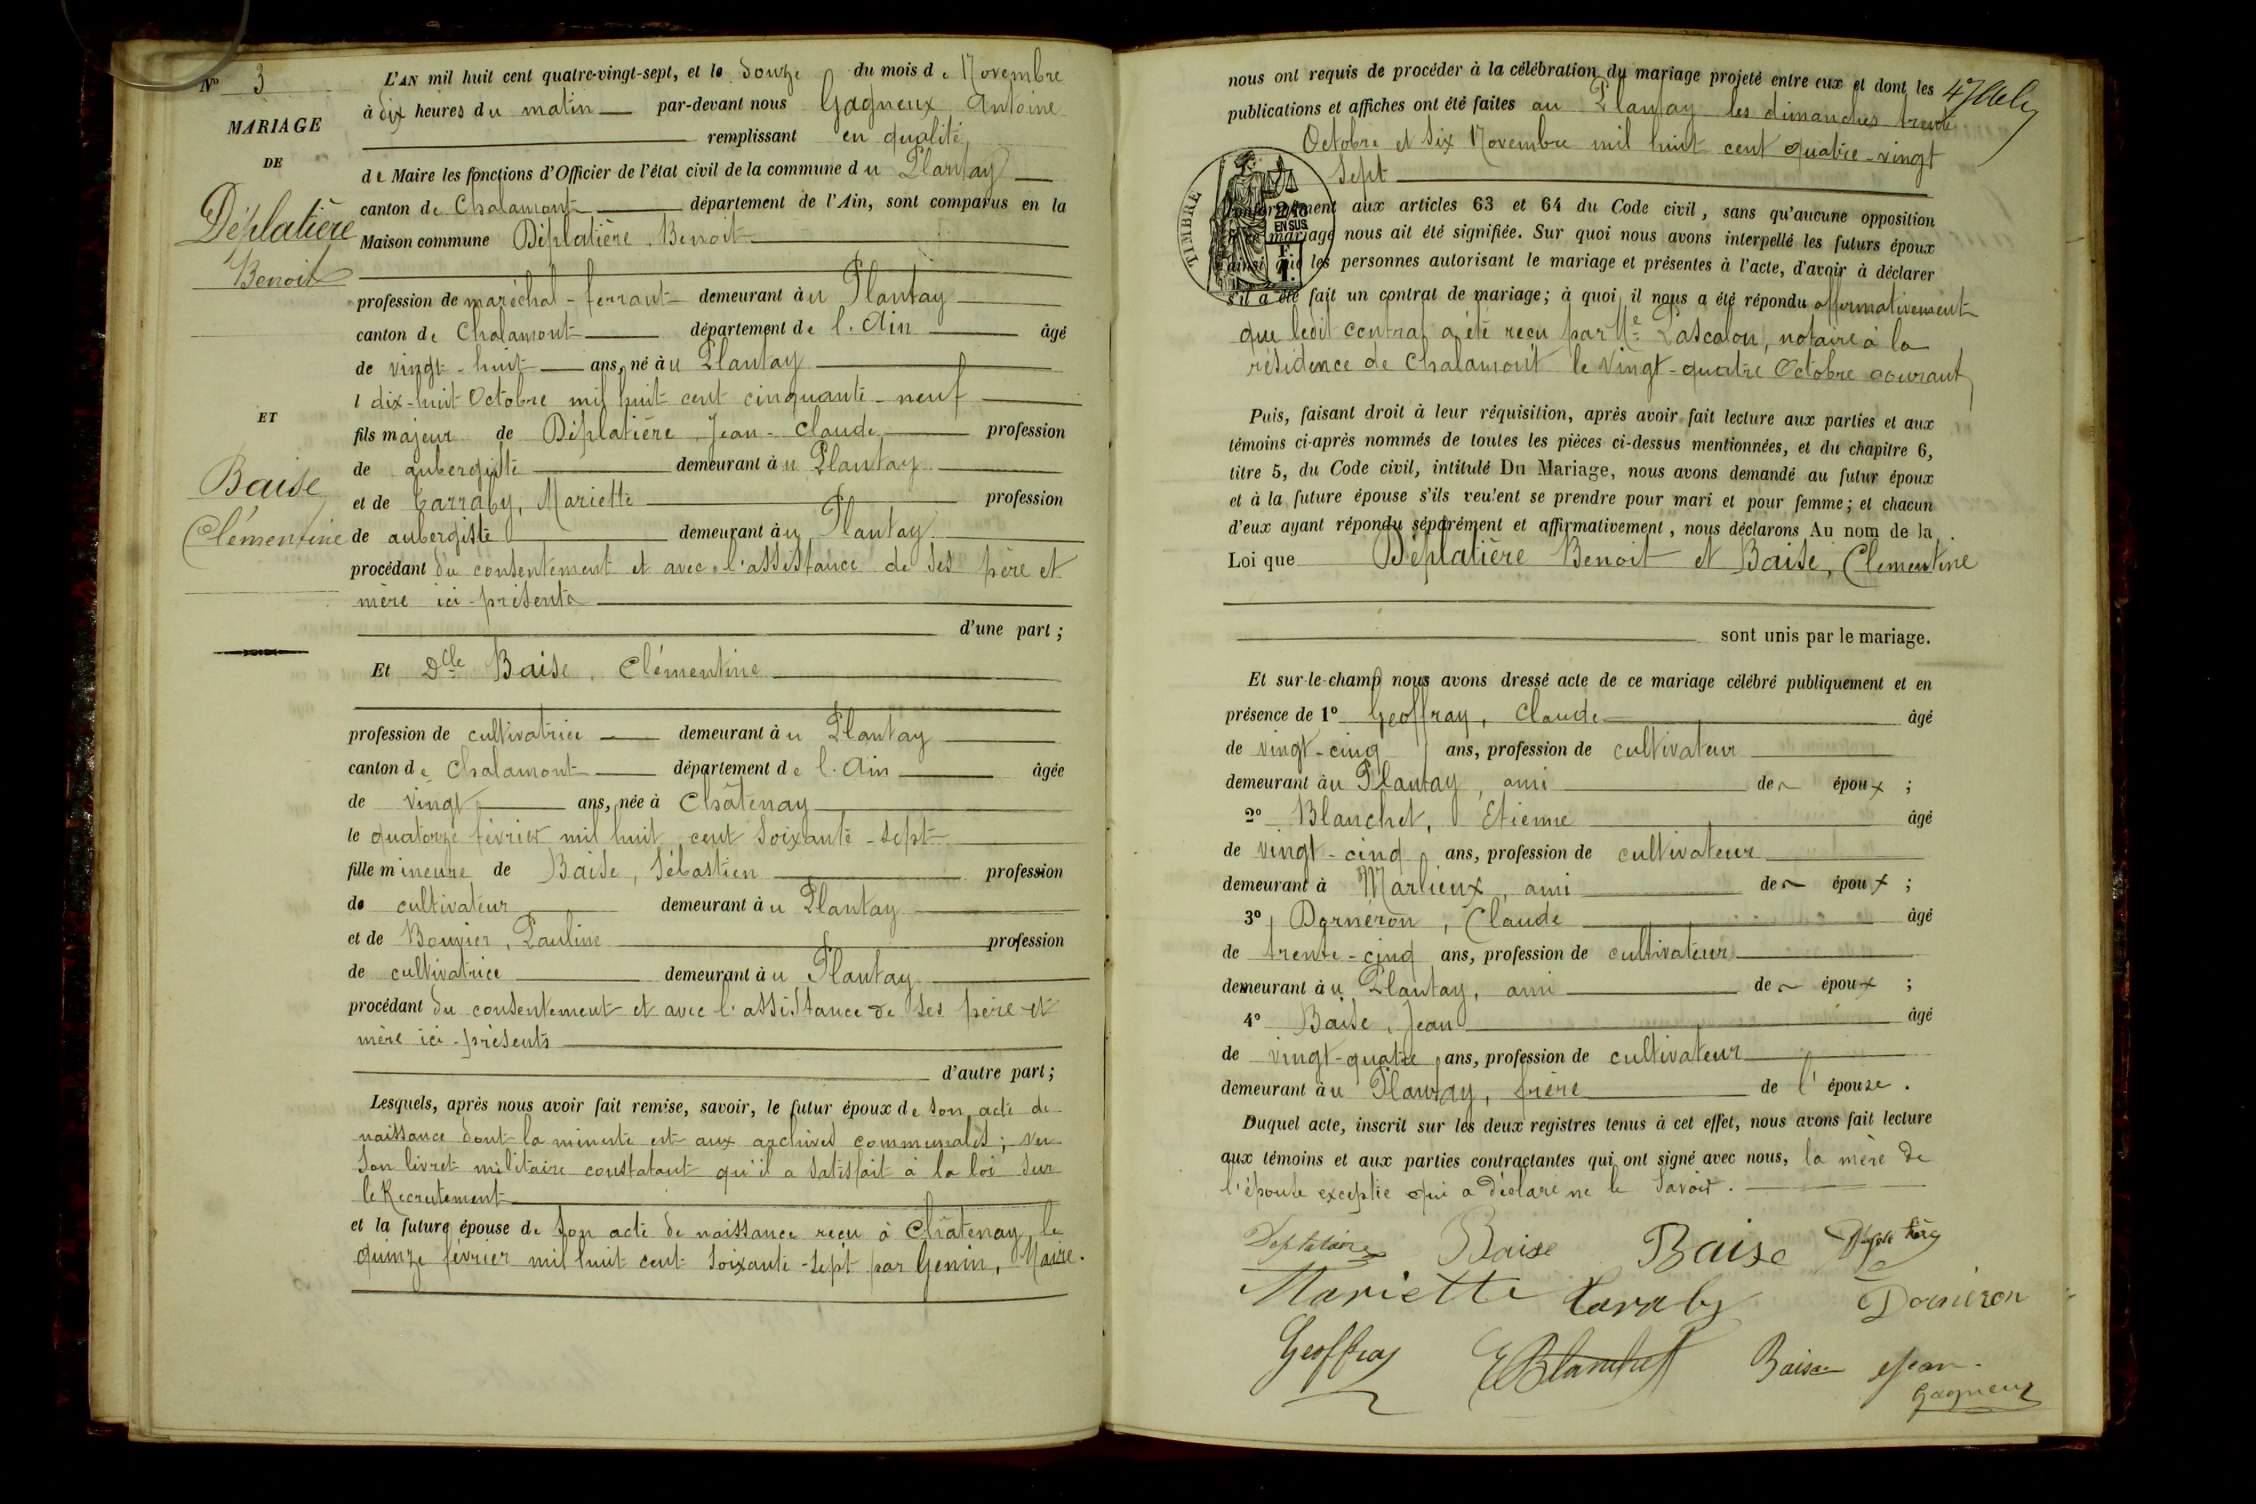 N° 3
MARIAGE
DE
Déplatière
Benoit
ET
Baise
Clémentine
L'AN mil huit cent quatre-vingt-sept, et le douze du mois de Novembre
à dix heures du matin par-devant nous Gagneux Antoine
remplissant en qualité
de Maire les fonctions d'Officier de l'état civil de la commune du Plantay
canton de Chalamont département de l'Ain, sont comparus en la
Maison commune Déplatière Benoit
profession de maréchal-ferrant demeurant au Plantay
canton de Chalamont département de l'Ain âgé
de vingt-huit ans, né au Plantay
l dix-huit Octobre mil huit cent cinquante-neuf
fils majeur de Déplatière, Jean-Claude profession
de aubergiste demeurant au Plantay
et de Carraby, Mariette profession
de aubergiste demeurant au Plantay
procédant du consentement et avec l'assistance de ses père et
mère ici-présents
d'une part ;
Et Dlle Baise, Clémentine
profession de cultivatrice demeurant au Plantay
canton de Chalamont département de l'Ain âgée
de vingt ans, née à Châtenay
le quatorze février mil huit cent soixante-sept
fille mineure de Baise, Sébastien profession
de cultivateur demeurant au Plantay
et de Bouvier, Pauline profession
de cultivatrice demeurant au Plantay
procédant du consentement et avec l'assistance de ses père et
mère ici-présents
d'autre part ;
Lesquels, après nous avoir fait remise, savoir, le futur époux de son acte de
naissance dont la minute est aux archives communales ; vu
son livret militaire constatant qu'il a satisfait à la loi sur
le Recrutement
et la future épouse de son acte de naissance reçu à Châtenay le
quinze février mil huit cent soixante-sept par Genin, Maire.
nous ont requis de procéder à la célébration du mariage projeté entre eux et dont les
publications et affiches ont été faites au Plantay les dimanches trente
Octobre et six Novembre mil huit cent quatre-vingt
sept
TIMBRE
2/10
EN SUS
F.
1.
conformément aux articles 63 et 64 du Code civil, sans qu'aucune opposition
à ce mariage nous ait été signifiée. Sur quoi nous avons interpellé les futurs époux
ainsi que les personnes autorisant le mariage et présentes à l'acte, d'avoir à déclarer
s'il a été fait un contrat de mariage ; à quoi il nous a été répondu affirmativement
que ledit contrat a été reçu par Me Lascalou, notaire à la
résidence de Chalamont le vingt-quatre Octobre courant
Puis, faisant droit à leur réquisition, après avoir fait lecture aux parties et aux
témoins ci-après nommés de toutes les pièces ci-dessus mentionnées, et du chapitre 6,
titre 5, du Code civil, intitulé Du Mariage, nous avons demandé au futur époux
et à la future épouse s'ils veulent se prendre pour mari et pour femme ; et chacun
d'eux ayant répondu séparément et affirmativement, nous déclarons Au nom de la
Loi que Déplatière Benoit et Baise, Clementine
sont unis par le mariage.
Et sur-le-champ nous avons dressé acte de ce mariage célébré publiquement et en
présence de 1° Geoffray, Claude âgé
de vingt-cinq ans, profession de cultivateur
demeurant au Plantay, ami de époux ;
2° Blanchet, Etienne âgé
de vingt-cinq ans, profession de cultivateur
demeurant à Marlieux, ami de époux ;
3° Dorneron, Claude âgé
de trente-cinq ans, profession de cultivateur
demeurant au Plantay, ami de époux ;
4° Baise, Jean âgé
de vingt-quatre ans, profession de cultivateur
demeurant au Plantay, frère de l'épouse.
Duquel acte, inscrit sur les deux registres tenus à cet effet, nous avons fait lecture
aux témoins et aux parties contractantes qui ont signé avec nous, la mère de
l'épouse exceptée qui a déclaré ne le savoir.
Baise Baise
Mariette Carraby Dorneron
Geoffray E Blanchet Baise Jean
Gagneux